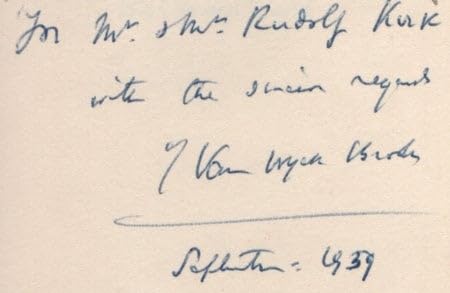 For Mr. & Mrs. Rudolf Kirk
with the sincere regards
of Van Wyck Brooks
September - 1939